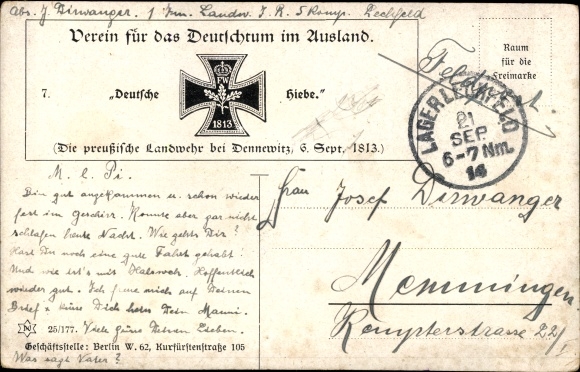 Abs. J. Dirwanger. 1 Inn. Landw. I. R. 5 Komp. Lechfeld
Verein für das Deutschtum im Ausland.
7. „Deutsche Hiebe.“
FW
1813
(Die preußische Landwehr bei Dennewitz, 6. Sept. 1813.)
Feldpost
Raum
für die
Freimarke
LAGER LECHFELD
21
SEP.
6-7 Nm.
14
M. l. Pi.
Bin gut angekommen u. schon wieder
fest im Geschirr. Konnte aber gar nicht
schlafen heute Nacht. Wie gehts Dir?
Hast Du noch eine gute Fahrt gehabt?
Und wie ist's mit Halsweh. Hoffentlich
wieder gut. Ich freue mich auf Deinen
Brief u. küsse Dich Dein Manni.
25/177. Viele Grüsse Deinen Lieben.
Geschäftsstelle: Berlin W. 62, Kurfürstenstraße 105
Was sagt Vater?
Frau Josef Dirwanger
Memmingen
Kempterstrasse 22/I